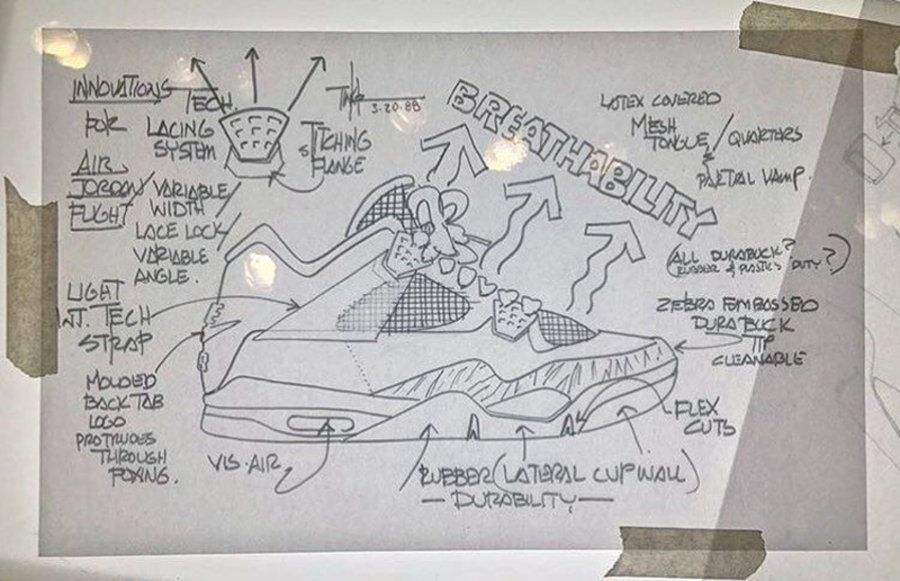 INNOVATIONS
FOR
AIR
JORDAN/
FLIGHT
TECH.
LACING
SYSTEM
STITCHING
FLANGE
3.20.88
BREATHABILITY
LATEX COVERED
MESH
TONGUE/QUARTERS
&
PARTIAL VAMP.
VARIABLE
WIDTH
LACE LOCK/
VARIABLE
ANGLE.
(ALL DURABUCK?
(RUBBER & PLASTICS DUTY?)
LIGHT
WT. TECH
STRAP
ZEBRA EMBOSSED
DURABUCK
TIP
CLEANABLE
MOLDED
BACK TAB
LOGO
PROTRUDES
THROUGH
FOXING.
FLEX
CUTS
VIS-AIR
RUBBER (LATERAL CUP WALL)
— DURABILITY —